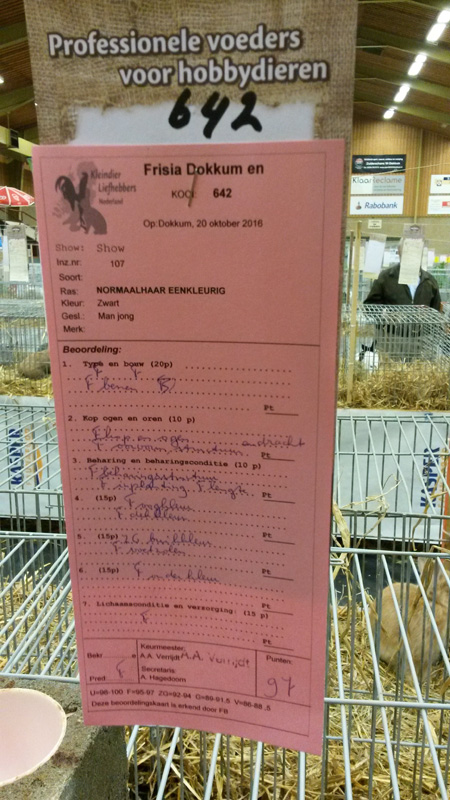 Professionele voeders
voor hobbydieren
642
Kleindier
Liefhebbers
Nederland
Frisia Dokkum en
KOOI: 642
Op:Dokkum, 20 oktober 2016
Show: Show
Inz.nr: 107
Soort:
Ras: NORMAALHAAR EENKLEURIG
Kleur: Zwart
Gesl.: Man jong
Merk:
Beoordeling:
1. Type en bouw (20p)
F benen
Pt
2. Kop ogen en oren (10 p)
F kop en ogen
F oorvorm
Pt
3. Beharing en beharingsconditie (10 p)
F lengte
Pt
4. (15p) F oogkleur
F dekkleur
Pt
5. (15p) ZG buikkleur
F voetzolen
Pt
6. (15p) F onderkleur
Pt
7. Lichaamsconditie en verzorging: (15 p)
F
Pt
Bekr. =
Pred. F
Keurmeester:
A.A. Verrijdt A.A. Verrijdt
Secretaris
A. Hagedoorn
Punten:
97
U=98-100 F=95-97 ZG=92-94 G=89-91,5 V=86-88,5
Deze beoordelingskaart is erkend door FB
Klaasreclame
Rabobank
KASPER